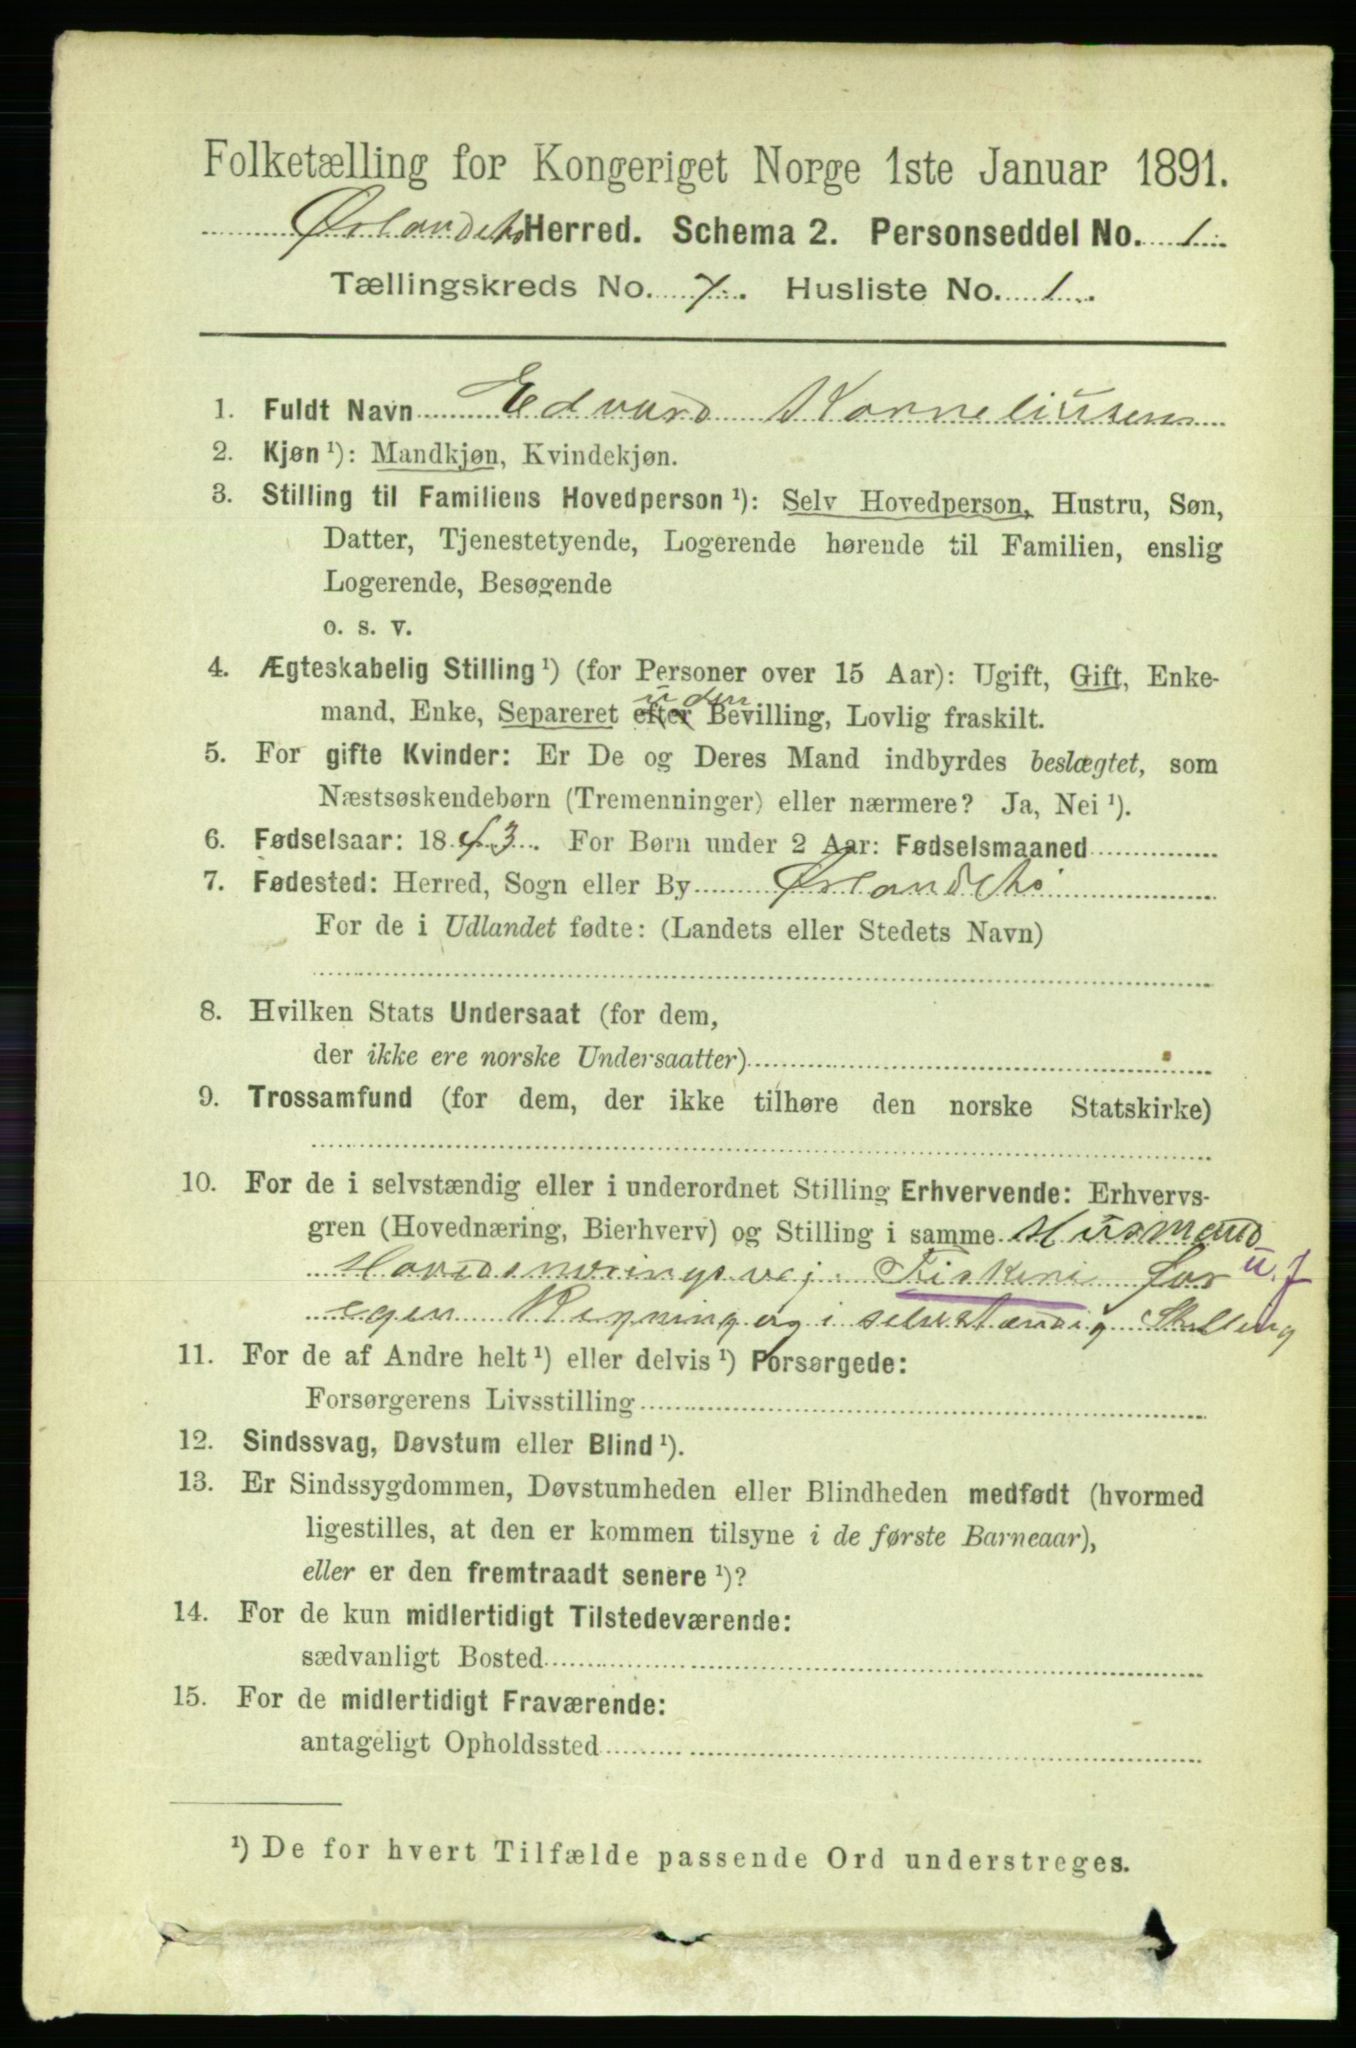 Folketælling for Kongeriget Norge 1ste Januar 1891.
Ørlandets Herred. Schema 2. Personseddel No. 1.
Tællingskreds No. 7. Husliste No. 1.
1. Fuldt Navn Edvard Korneliusen
2. Kjøn ¹): Mandkjøn, Kvindekjøn.
3. Stilling til Familiens Hovedperson ¹): Selv Hovedperson, Hustru, Søn,
Datter, Tjenestetyende, Logerende hørende til Familien, enslig
Logerende, Besøgende
o. s. v.
4. Ægteskabelig Stilling ¹) (for Personer over 15 Aar): Ugift, Gift, Enke-
uden
mand, Enke, Separeret efter Bevilling, Lovlig fraskilt.
5. For gifte Kvinder: Er De og Deres Mand indbyrdes beslægtet, som
Næstsøskendebørn (Tremenninger) eller nærmere? Ja, Nei ¹).
6. Fødselsaar: 1843. For Børn under 2 Aar: Fødselsmaaned
7. Fødested: Herred, Sogn eller By Ørlandets
For de i Udlandet fødte: (Landets eller Stedets Navn)
8. Hvilken Stats Undersaat (for dem,
der ikke ere norske Undersaatter)
9. Trossamfund (for dem, der ikke tilhøre den norske Statskirke)
10. For de i selvstændig eller i underordnet Stilling Erhvervende: Erhvervs-
gren (Hovednæring, Bierhverv) og Stilling i samme Husmand
u. J
Hovednæringsvej. Fiskeri for
egen Regning og i selvstændig Stilling
11. For de af Andre helt ¹) eller delvis ¹) Forsørgede:
Forsørgerens Livsstilling
12. Sindssvag, Døvstum eller Blind ¹).
13. Er Sindssygdommen, Døvstumheden eller Blindheden medfødt (hvormed
ligestilles, at den er kommen tilsyne i de første Barneaar),
eller er den fremtraadt senere ¹)?
14. For de kun midlertidigt Tilstedeværende:
sædvanligt Bosted
15. For de midlertidigt Fraværende:
antageligt Opholdssted
¹) De for hvert Tilfælde passende Ord understreges.